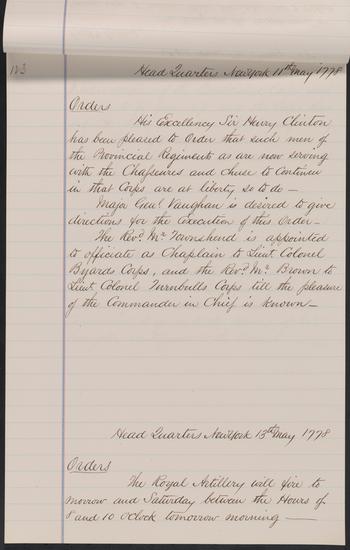 123
Head Quarters NewYork 11th May 1778
Orders
His Excellency Sir Henry Clinton
has been pleased to Order that such men of
the Provincial Regiments as are now serving
with the Chafseures and chuse to Continue
in that Corps are at liberty so to do —
Major Genl. Vaughan is desired to give
directions for the Execution of this Order —
The Revd. Mr. Townshend is appointed
to officiate as Chaplain to Lieut. Colonel
Byards Corps, and the Revd. Mr. Brown to
Lieut. Colonel Turnbulls Corps till the pleasure
of the Commander in Chief is known —
Head Quarters NewYork 13th May 1778
Orders
The Royal Artillery will fire to
morrow and Saturday between the Hours of
8 and 10 OClock tomorrow morning —